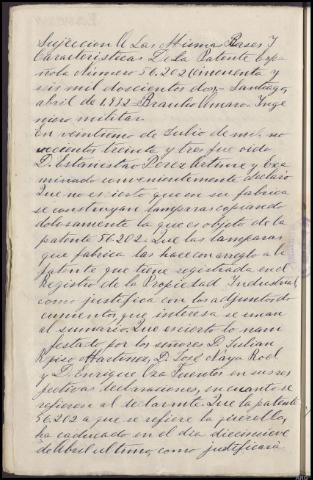 Sujeccion A Las Mismas Bases Y
Caracteristicas De La Patente Espa-
ñola Número 56.202 (Cincuenta y
seis mil doscientos dos- Santiago
abril de 1932- Braulio Amaro- Inge-
niero militar-
En veintiuno de Julio de mil no-
vecientos treinta y tres fue oido
D. Estanislao Perez Artime y Exa-
minado convenientemente declaró
Que no es cierto que en su fabrica
se construyan lamparas copiando
dolosamente la que es objeto de la
patente 56.202- Que las lamparas
que fabrica las hace con arreglo a la
Patente que tiene registrada en el
Registro de la Propiedad Industrial
como justifica con los adjuntos do-
cumentos que interesa se unan
al sumario. Que es cierto lo mani-
festado por los señores D. Julian
Martinez, D. José Naya Rod
y D. Enrique Oza Fuentes en sus res-
pectivas declaraciones, en cuanto se
refieren al declarante. Que la patente
56.202 a que se refiere la querella,
ha caducado en el dia diecinueve
de Abril ultimo, como justificará